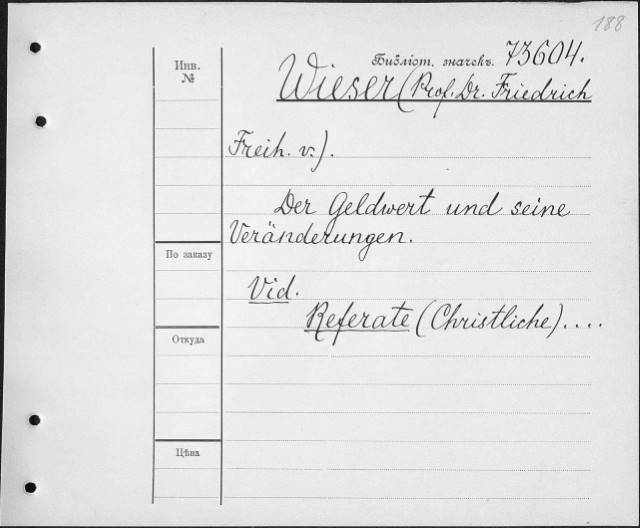 188
Инв.
№
Библіот. значекъ. 73604.
Wieser (Prof. Dr. Friedrich
Freih. v.).
Der Geldwert und seine
Veränderungen.
По заказу
Vid.
Referate (Christliche)....
Откуда
Цѣна